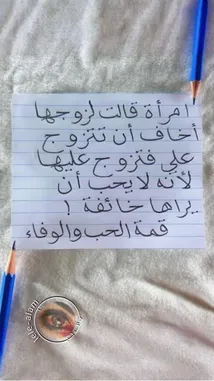 امرأة قالت لزوجها
أخاف أن تتزوج
علي فتزوج عليها
لأنه لا يحب أن
يراها خائفة !
قمة الحب والوفاء
lole-alam